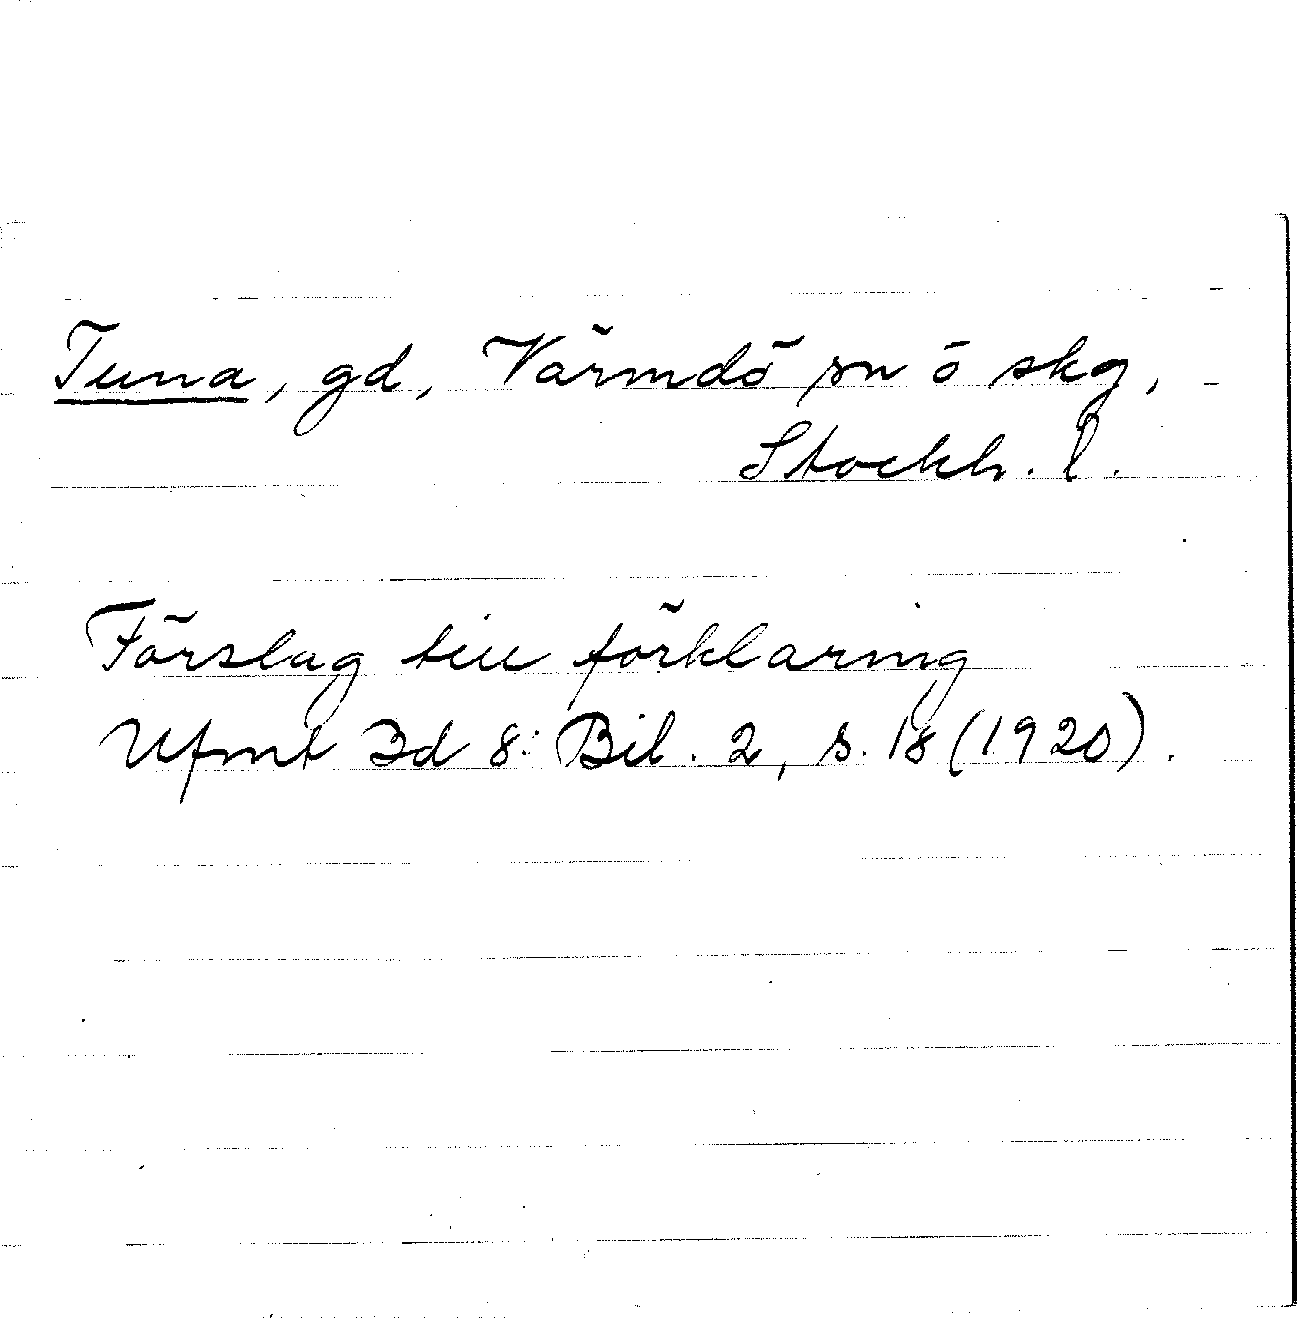 Tuna, gd, Värmdö sn o skg,
Stockh. l.
Förslag till förklaring
Ufmt Bd 8: Bil. 2, s. 18 (1920).